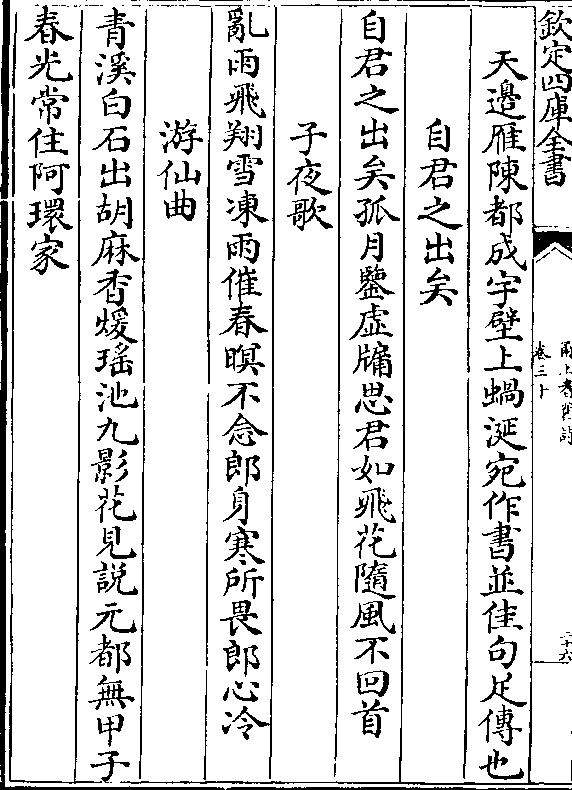 欽定四庫全書
甬上耆舊詩
卷三十
二十六
天邊雁陳都成字壁上蝸涎宛作書並佳句足傳也
自君之出矣
自君之出矣孤月鑒虛牖思君如飛花隨風不回首
子夜歌
亂雨飛翔雪凍雨催春暝不念郎身寒所畏郎心冷
游仙曲
青溪白石出胡麻香煖瑤池九影花見說元都無甲子
春光常住阿環家